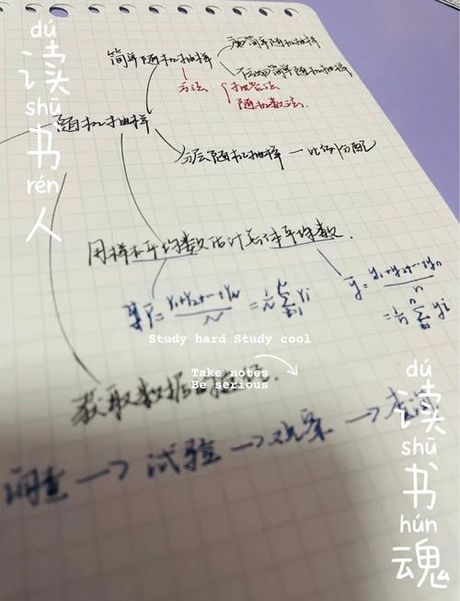 dú
读
shū
书
rén
人
简单随机抽样
放回简单随机抽样
不放回简单随机抽样
方法
抽签法
随机数法
随机抽样
分层随机抽样 — 比例分配
用样本平均数估计总体平均数.
Ȳ = Y₁+Y₂+…+Yₙ / N = 1/N ∑ᵢ₌₁ᴺ Yᵢ
ȳ = y₁+y₂+…+yₙ / n
= 1/n ∑ᵢ₌₁ⁿ yᵢ
Study hard Study cool
Take notes
Be serious
获取数据的
调查 → 试验 → 观察 → 查询
dú
读
shū
书
hún
魂